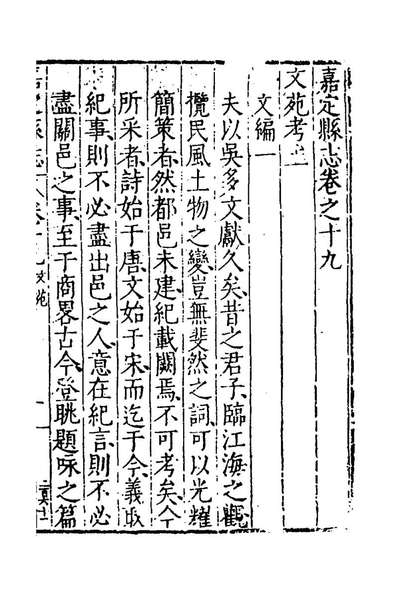 嘉定縣志卷之十九
文苑考上
文編一
夫以吳多文獻久矣昔之君子臨江海之觀
攬民風土物之變豈無斐然之詞可以光耀
簡策者然都邑未建紀載闕焉不可考矣今
所采者詩始于唐文始于宋而迄于今義取
紀事則不必盡出邑之人意在紀言則不必
盡關邑之事至于商畧古今登眺題咏之篇
嘉定縣志 卷十九 文苑 一